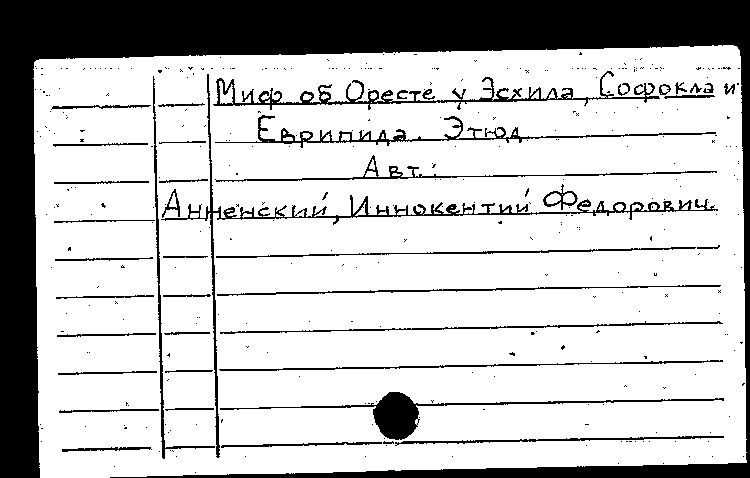 Миф об Оресте у Эсхила, Софокла и
Еврипида. Этюд
Авт.:
Анненский, Иннокентий Федорович.